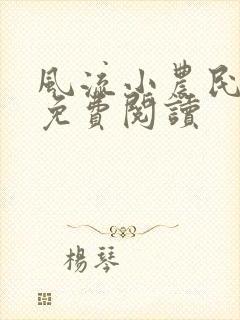 風流小農民
免費閱讀
楊琴